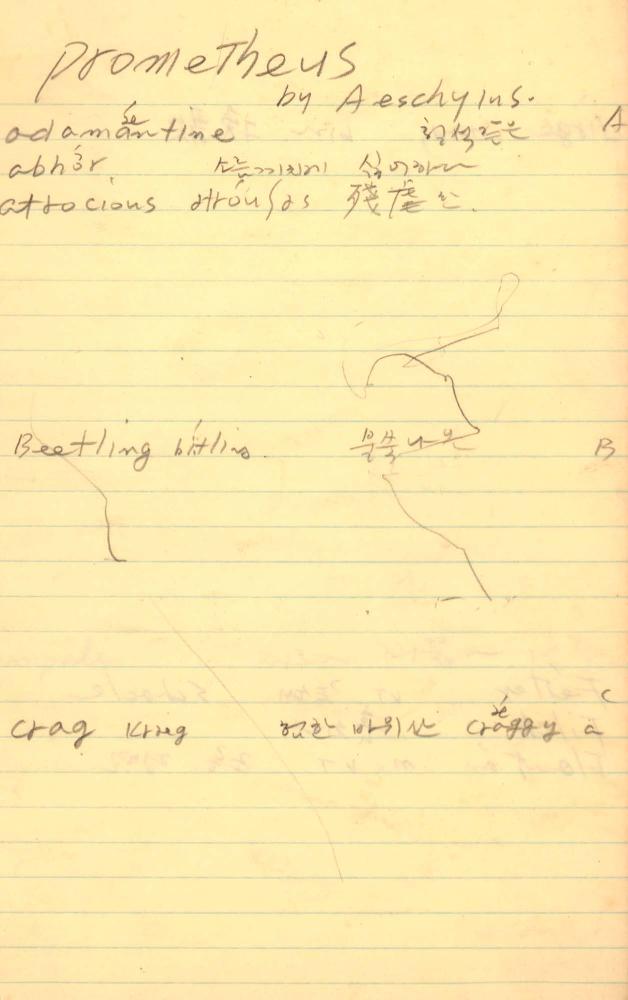 prometheus
by Aeschylus.
A
adamantine
abhór 소름끼치게 싫어하다
atrocious 殘虐한.
Beetling bítliŋ 불쑥 나온 B
C
crag kræg 험한 바위산 crággy a